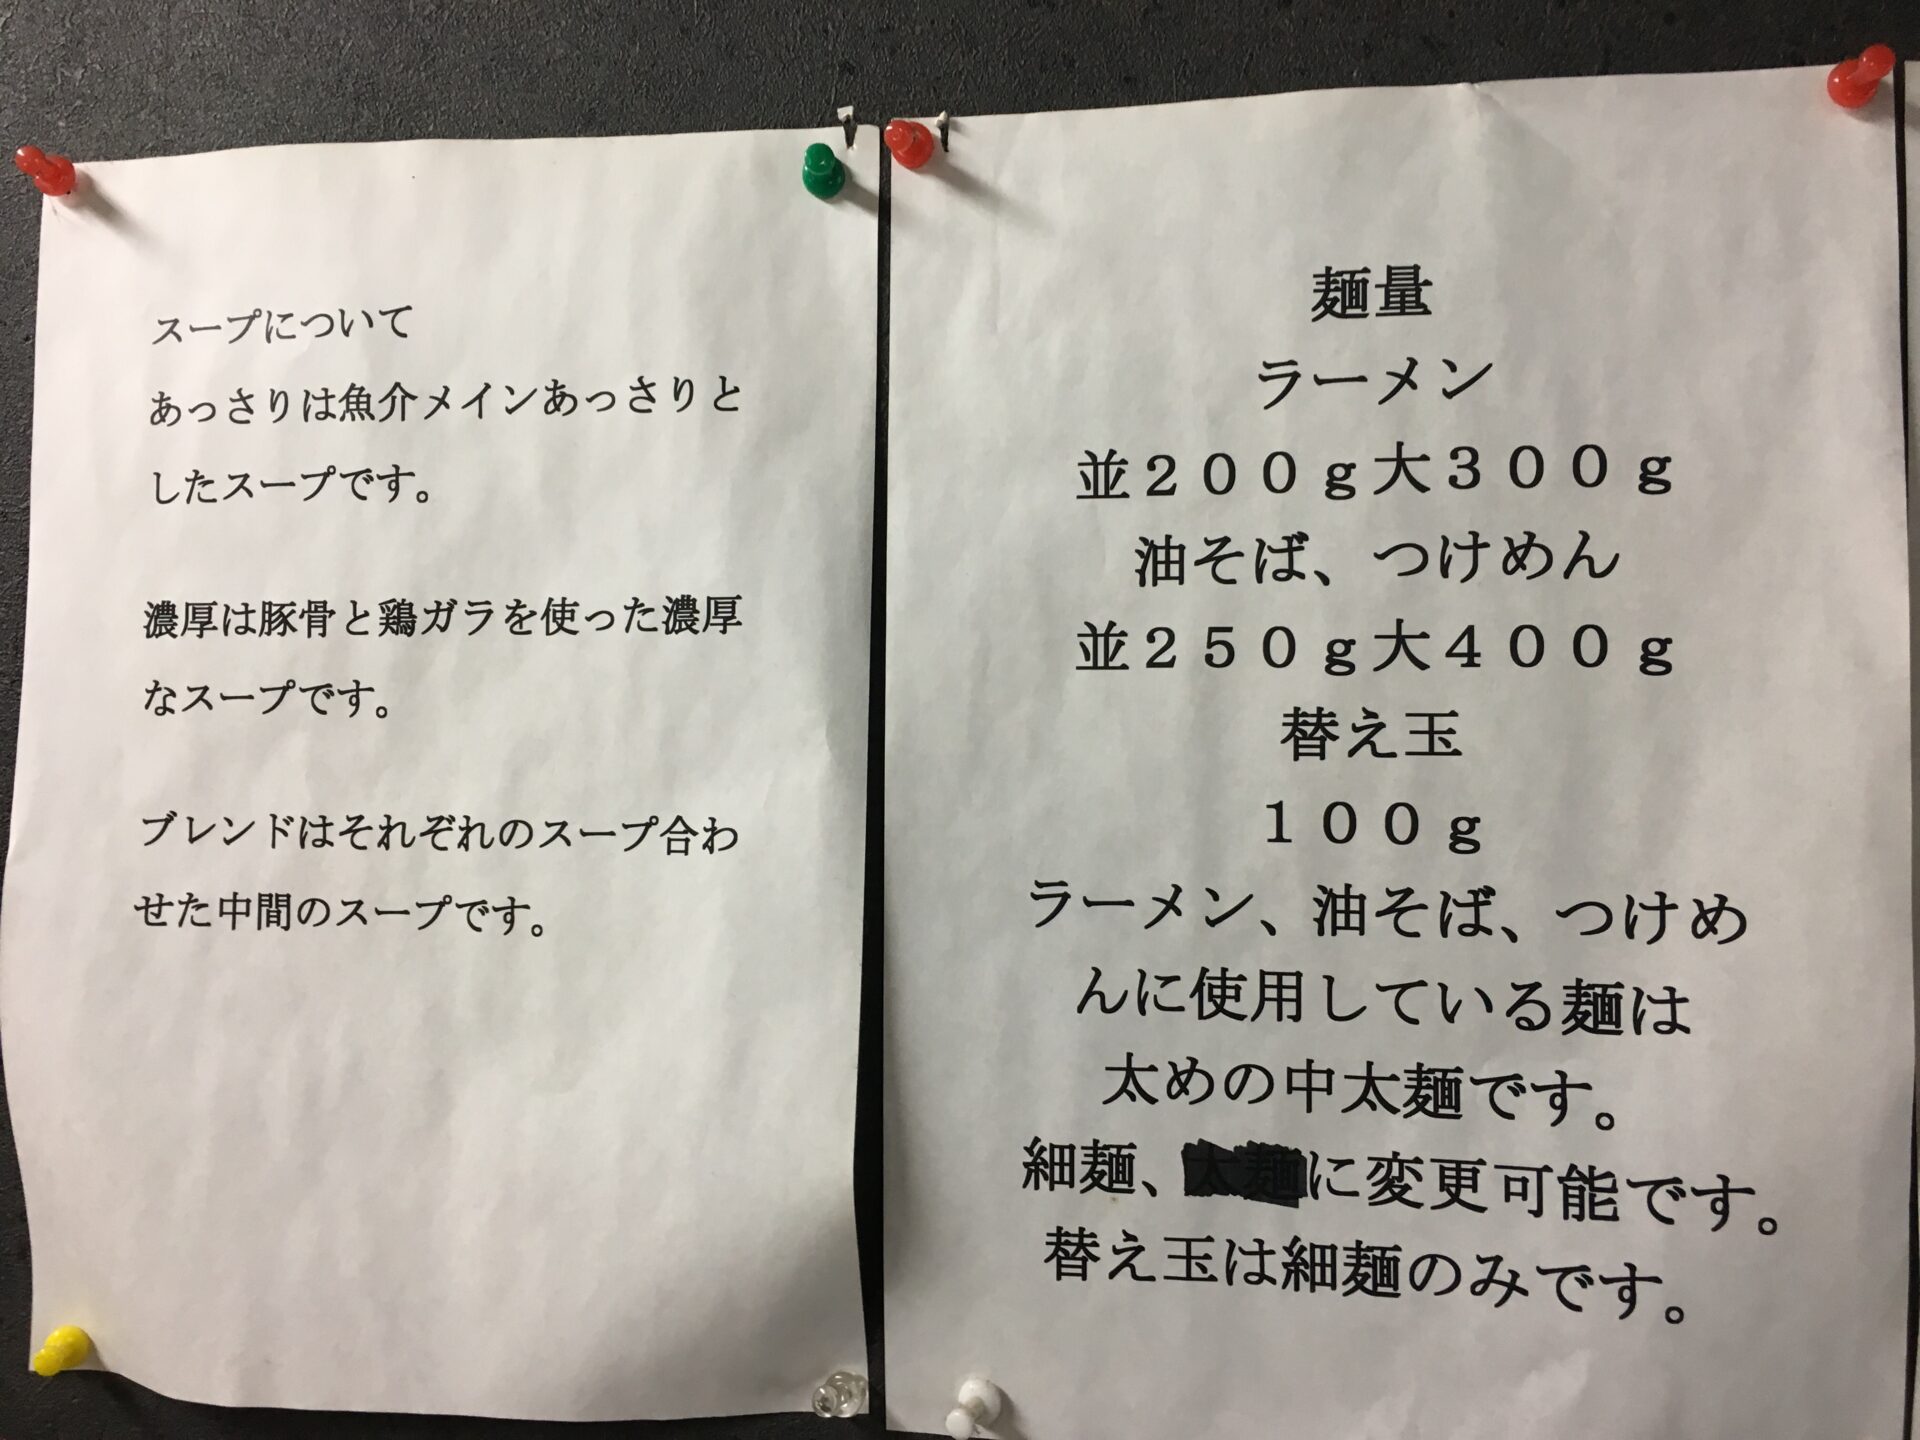 スープについて
あっさりは魚介メインあっさりと
したスープです。
濃厚は豚骨と鶏ガラを使った濃厚
なスープです。
ブレンドはそれぞれのスープ合わ
せた中間のスープです。
麺量
ラーメン
並２００ｇ大３００ｇ
油そば、つけめん
並２５０ｇ大４００ｇ
替え玉
１００ｇ
ラーメン、油そば、つけめ
んに使用している麺は
太めの中太麺です。
細麺、太麺に変更可能です。
替え玉は細麺のみです。